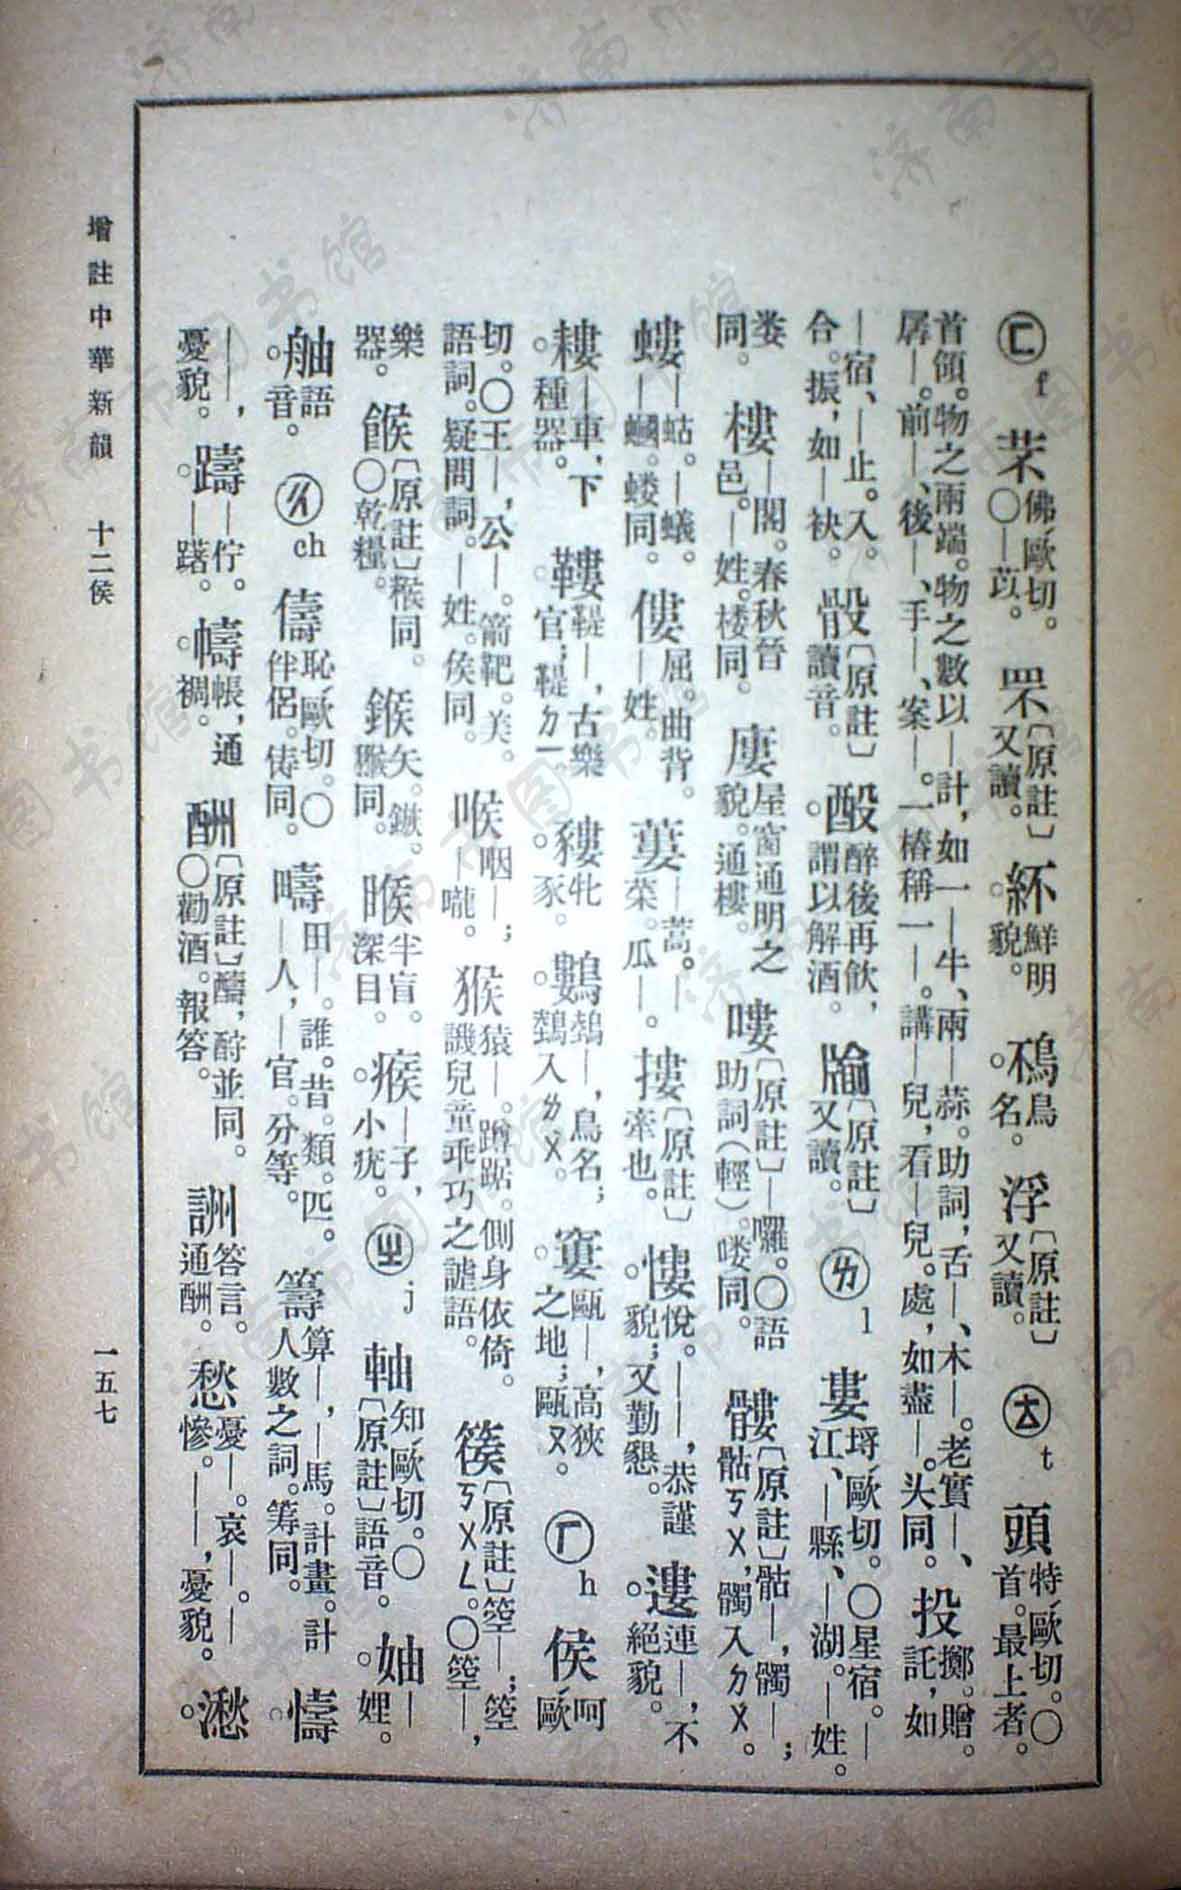 ㊀ㄈ f 芣佛ˊ歐切。〇—苡。 罘〔原註〕又讀。 紑鮮明貌。 鴀鳥名。 浮〔原註〕又讀。 ㄊ t 頭特ˊ歐切。〇首。最上者。
首領。物之兩端。物之數以—計,如一—牛、兩—蒜。助詞,舌—、木—。老實—、孱—。前—、後—、手—、案—。一樁稱一—。講—兒,看—兒。處,如盡—。头同。 投擲。贈。託,如
—宿、—止。入。合。振,如—袂。 骰〔原註〕讀音。 酘醉後再飲,謂以解酒。 牏〔原註〕又讀。 ㄌ l 婁埒ˊ歐切。〇星宿。—江、—縣、—湖。—姓。
娄同。 樓—閣。春秋晉邑。—姓。楼同。 廔屋窗通明之貌。通樓。 嘍〔原註〕—囉。〇語助詞(輕)。喽同。 髏〔原註〕骷—,髑—;骷ㄎㄨ,髑入ㄉㄨ。
螻—蛄。—蟻。—蟈。蝼同。 僂屈。曲背。—姓。 蔞—蒿。—菜。瓜—。 摟〔原註〕牽也。 慺悅。——,恭謹貌;又勤懇。 遱連—,不絕貌。
耬—車,下種器。 鞻鞮—,古樂官;鞮ㄉㄧ。 貗牝豕。 鷜鵱—,鳥名;鵱入ㄌㄨ。 窶甌—,高狹之地;甌ㄡ。 ㄏ h 侯呵ˊ歐
切。〇王—,公—。箭靶。美。語詞。疑問詞。—姓。矦同。 喉咽—;—嚨。 猴猿—。蹲踞。側身依倚。譏兒童乖巧之謔語。 篌〔原註〕箜—;箜ㄎㄨㄥ。〇箜—,
樂器。 餱〔原註〕糇同。〇乾糧。 鍭矢。鏃。猴同。 睺半盲。深目。 瘊—子,小疣。 ㄓ j 軸知ˊ歐切。〇〔原註〕語音。 妯—娌。
舳語音。 ㄔ ch 儔恥ˊ歐切。〇伴侶。俦同。 疇田—。誰。昔。類。匹。—人,—官。分等。 籌算—,—馬。計畫。計人數之詞。筹同。 懤
——,憂貌。 躊—佇。—躇。 幬帳,通裯。 酬〔原註〕醻,酧並同。〇勸酒。報答。 詶答言。通酬。 愁憂—。哀—。—慘。——,憂貌。 懋。
增註中華新韻 十二侯 一五七